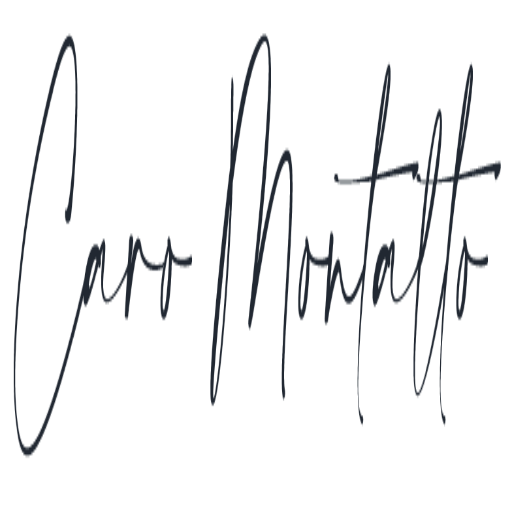 Caro Montalto